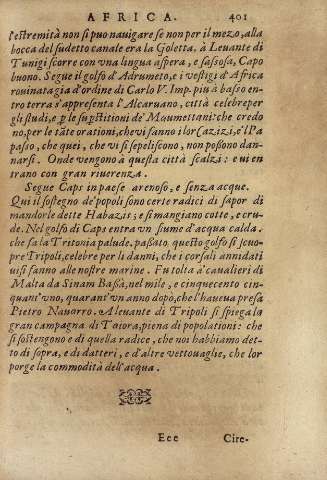 AFRICA. 401
l'estremità non si puo nauigare se non per il mezo, alla
bocca del sudetto canale era la Goletta, à Leuante di
Tunigi scorre con vna lingua aspera, e sassosa, Capo
buono. Segue il golfo d'Adrumeto, e i vestigi d'Africa
rouinata già d'ordine di Carlo V. Imp. piu à basso en
tro terra s'appresenta l'Alcaruano, città celebre per
gli studi, e p le supstitioni de' Maumettani: che credo
no, per le tãte orationi, che vi fanno i lor Cazizi, e'l Pa
passo, che quei, che vi si sepeliscono, non possono dan-
narsi. Onde vengono à questa città scalzi: e vi en
trano con gran riuerenza.
Segue Caps in paese arenoso, e senza acque.
Qui il sostegno de' popoli sono certe radici di sapor di
mandorle dette Habazis; e si mangiano cotte, e cru-
de. Nel golfo di Caps entra vn fiume d'acqua calda.
che fa la Tritonia palude. passato questo golfo si scuo-
pre Tripoli, celebre per li danni, che i corsali annidati
vi si fanno alle nostre marine. Fu tolta a' caualieri di
Malta da Sinam Bassà, nel mile, e cinquecento cin-
quant'vno, quarant'vn anno dopo, che l'haueua presa
Pietro Nauarro. A leuante di Tripoli si spiega la
gran campagna di Taiora, piena di popolationi: che
si sostengono e di quella radice, che noi habbiamo det-
to di sopra, e di datteri, e d'altre vettouaglie, che lor
porge la commodità dell'acqua.
Eee Cire-